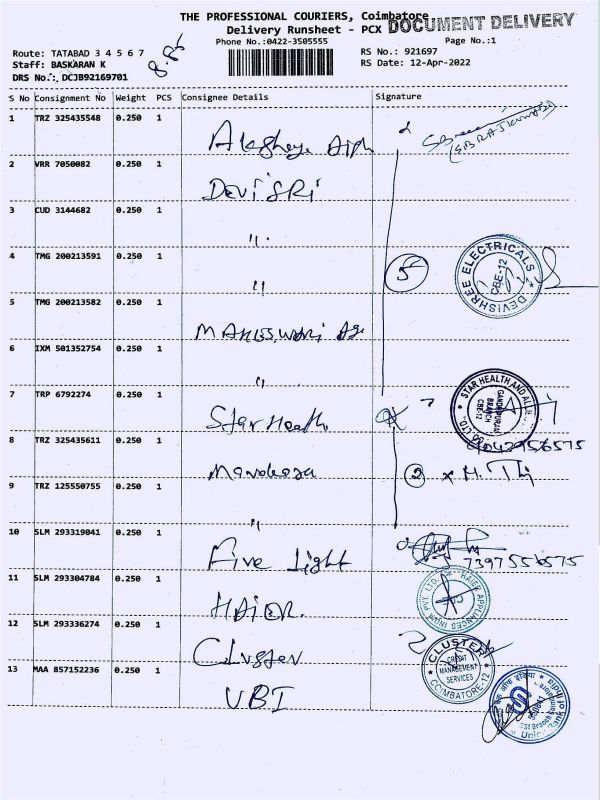 THE PROFESSIONAL COURIERS, Coimbatore
DOCUMENT DELIVERY
Delivery Runsheet - PCX
Phone No.:0422-3505555
Page No.:1
Route: TATABAD 3 4 5 6 7
RS No.: 921697
Staff: BASKARAN K
RS Date: 12-Apr-2022
DRS No.: DCJB92169701
S No Consignment No Weight PCS Consignee Details Signature
1 TRZ 325435548 0.250 1
2 VRR 7050082 0.250 1 DEVi SRi
3 CUD 3144682 0.250 1 "
4 TMG 200213591 0.250 1 "
5 5 TMG 200213582 0.250 1
DEVISHREE ELECTRICALS CBE-12
6 IXM 501352754 0.250 1 "
7 TRP 6792274 0.250 1 Star Health
STAR HEALTH AND
GANDHIPURAM BRANCH CBE-12
9042956575
8 TRZ 325435611 0.250 1
2
9 TRZ 125550755 0.250 1 "
10 SLM 293319041 0.250 1 Five Light
7397556575
11 SLM 293304784 0.250 1 HAIER
HAIER APPLIANCES INDIA PVT. LTD.
12 SLM 293336274 0.250 1 Cluster
CLUSTER CREDIT MANAGEMENT SERVICES COIMBATORE-12
13 MAA 857152236 0.250 1 UBI